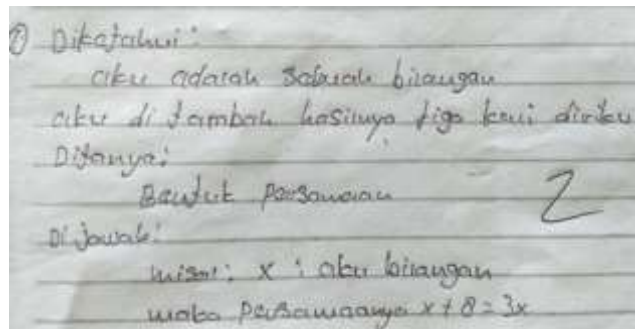 ① Diketahui:
aku adalah sebuah bilangan
aku di tambah hasilnya tiga kali diriku
Ditanya:
Bentuk persamaan
2
Di jawab:
misal: x : aku bilangan
maka persamaannya x + 8 = 3x